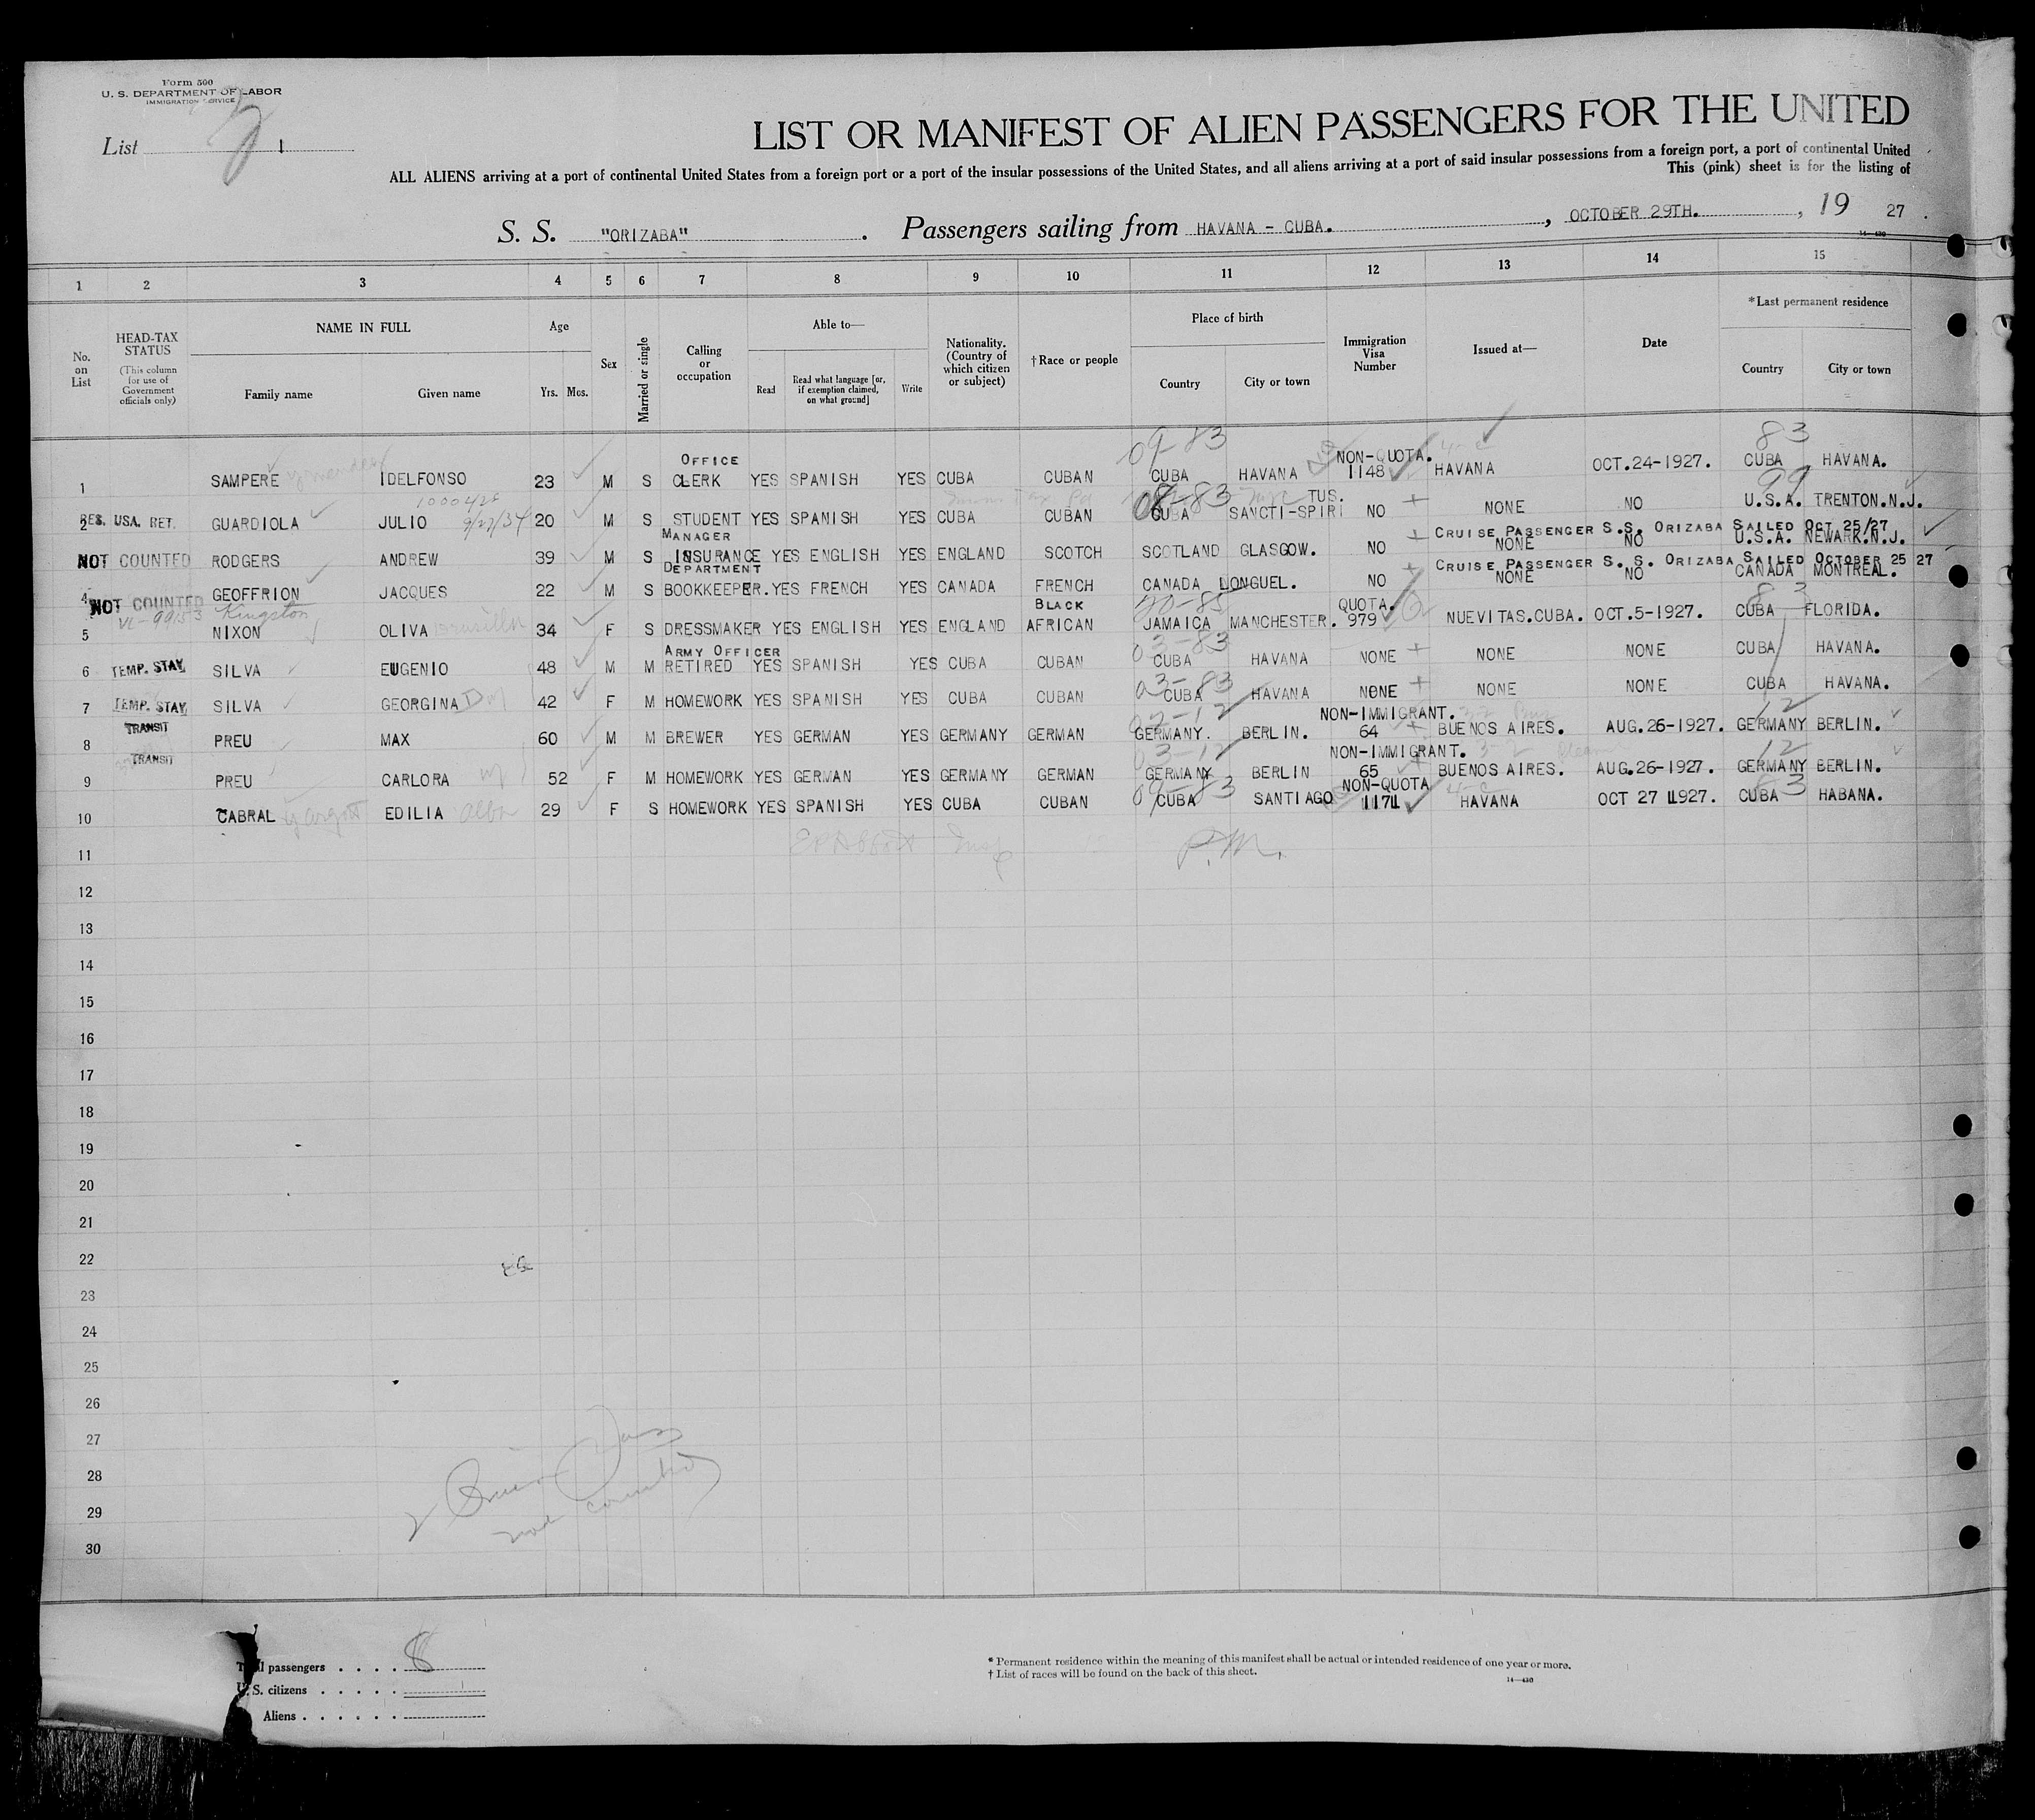 Form 500
U. S. DEPARTMENT OF LABOR
IMMIGRATION SERVICE
List 1
LIST OR MANIFEST OF ALIEN PASSENGERS FOR THE UNITED
ALL ALIENS arriving at a port of continental United States from a foreign port or a port of the insular possessions of the United States, and all aliens arriving at a port of said insular possessions from a foreign port, a port of continental United
This (pink) sheet is for the listing of
S. S. "ORIZABA" . Passengers sailing from HAVANA - CUBA. , OCTOBER 29TH. , 19 27 .
14—430
1 2 3 4 5 6 7 8 9 10 11 12 13 14 15
No. on List
HEAD-TAX STATUS (This column for use of Government officials only)
NAME IN FULL
Family name Given name
Age
Yrs. Mos.
Sex
Married or single
Calling or occupation
Able to—
Read Read what language [or, if exemption claimed, on what ground] Write
Nationality. (Country of which citizen or subject)
†Race or people
Place of birth
Country City or town
Immigration Visa Number
Issued at—
Date
*Last permanent residence
Country City or town
09-83 83
OFFICE NON-QUOTA.
1 SAMPERE IDELFONSO 23 M S CLERK YES SPANISH YES CUBA CUBAN CUBA HAVANA 1148 HAVANA OCT.24-1927. CUBA HAVANA.
1000428 08-83 TUS. 99
2 RES. USA. RET. GUARDIOLA JULIO 9/27/34 20 M S STUDENT YES SPANISH YES CUBA CUBAN CUBA SANCTI-SPIRI NO NONE NO U.S.A. TRENTON.N.J.
MANAGER CRUISE PASSENGER S.S. ORIZABA SAILED OCT 25/27
NOT COUNTED RODGERS ANDREW 39 M S INSURANCE YES ENGLISH YES ENGLAND SCOTCH SCOTLAND GLASGOW. NO NONE NO U.S.A. NEWARK.N.J.
DEPARTMENT CRUISE PASSENGER S. S. ORIZABA SAILED OCTOBER 25 27
4 NOT COUNTED GEOFFRION JACQUES 22 M S BOOKKEEPER. YES FRENCH YES CANADA FRENCH CANADA LONGUEL. NO NONE NO CANADA MONTREAL.
Kingston BLACK QUOTA. 83
5 NIXON OLIVA 34 F S DRESSMAKER YES ENGLISH YES ENGLAND AFRICAN JAMAICA MANCHESTER. 979 NUEVITAS.CUBA. OCT.5-1927. CUBA FLORIDA.
ARMY OFFICER 03-83
6 TEMP. STAY SILVA EUGENIO 48 M M RETIRED YES SPANISH YES CUBA CUBAN CUBA HAVANA NONE NONE NONE CUBA HAVANA.
03-83
7 TEMP. STAY SILVA GEORGINA 42 F M HOMEWORK YES SPANISH YES CUBA CUBAN CUBA HAVANA NONE NONE NONE CUBA HAVANA.
TRANSIT 02-12 NON-IMMIGRANT. 12
8 PREU MAX 60 M M BREWER YES GERMAN YES GERMANY GERMAN GERMANY. BERLIN. 64 BUENOS AIRES. AUG.26-1927. GERMANY BERLIN.
TRANSIT 03-12 NON-IMMIGRANT. 12
9 PREU CARLORA 52 F M HOMEWORK YES GERMAN YES GERMANY GERMAN GERMANY BERLIN 65 BUENOS AIRES. AUG.26-1927. GERMANY BERLIN.
09-83 NON-QUOTA 83
10 CABRAL EDILIA 29 F S HOMEWORK YES SPANISH YES CUBA CUBAN CUBA SANTIAGO 1174 HAVANA OCT 27 1927. CUBA HABANA.
11 P.M.
12
13
14
15
16
17
18
19
20
21
22
23
24
25
26
27
28
29
30
Total passengers . . . . 8
U. S. citizens . . . . .
Aliens . . . . . .
* Permanent residence within the meaning of this manifest shall be actual or intended residence of one year or more.
† List of races will be found on the back of this sheet.
14—430